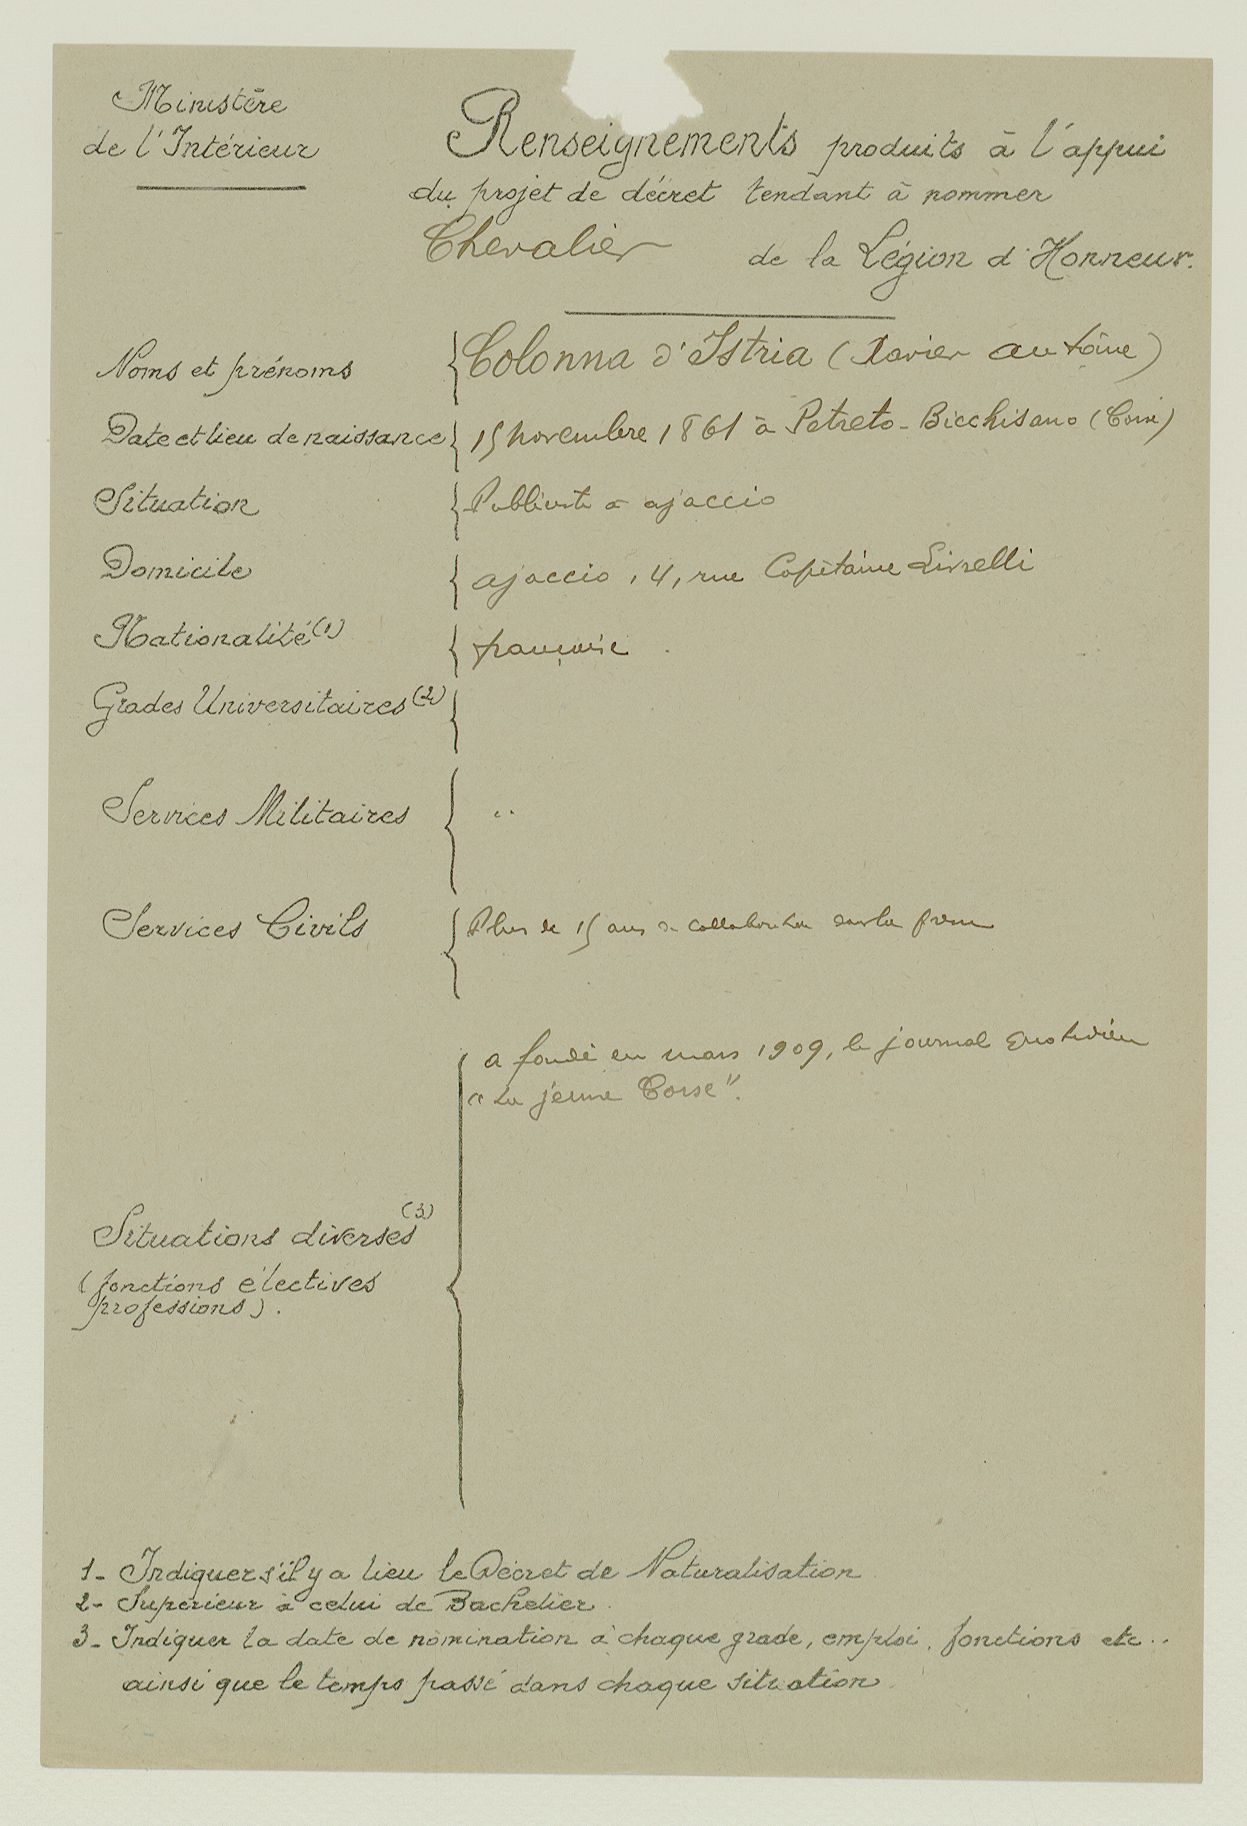 Ministère
de l'Intérieur
Renseignements produits à l'appui
du projet de décret tendant à nommer
Chevalier de la Légion d'Honneur.
Noms et prénoms { Colonna d'Istria (Xavier Antoine)
Date et lieu de naissance { 15 novembre 1861 à Petreto-Bicchisano (Corse)
Situation { Publiciste à ajaccio
Domicile { ajaccio, 4, rue Capitaine Livrelli
Nationalité (1) { française.
Grades Universitaires (2) {
Services Militaires { ..
Services Civils { Plus de 15 ans de collaboration dans la presse
a fondé en mars 1909, le journal quotidien
"La jeune Corse".
Situations diverses (3)
(fonctions électives
professions). {
1- Indiquer s'il y a lieu le Décret de Naturalisation
2- Supérieur à celui de Bachelier.
3- Indiquer la date de nomination à chaque grade, emploi, fonctions etc..
ainsi que le temps passé dans chaque situation.